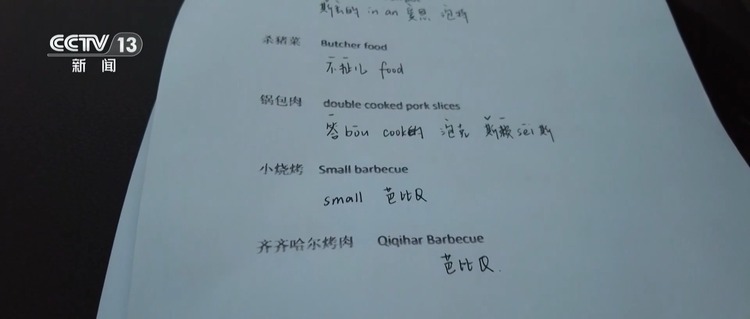 CCTV 13
新闻
斯式的 in an 复思 泡的
杀猪菜 Butcher food
不扯儿 food
锅包肉 double cooked pork slices
答bōu cook的 泡克 斯赖sei斯
小烧烤 Small barbecue
small 芭比Q
齐齐哈尔烤肉 Qiqihar Barbecue
芭比Q